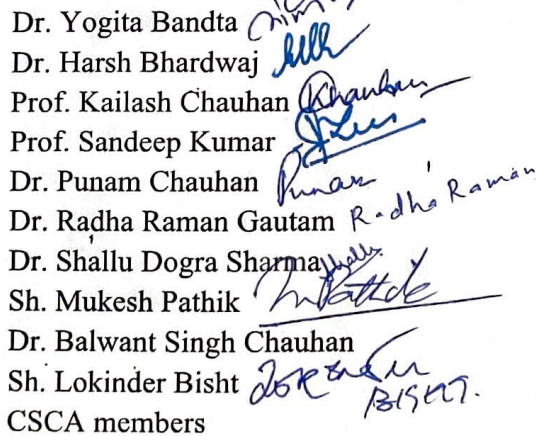 Dr. Yogita Bandta
Dr. Harsh Bhardwaj
Prof. Kailash Chauhan
Prof. Sandeep Kumar
Dr. Punam Chauhan Punam
Dr. Radha Raman Gautam Radha Raman
Dr. Shallu Dogra Sharma
Sh. Mukesh Pathik
Dr. Balwant Singh Chauhan
Sh. Lokinder Bisht
CSCA members